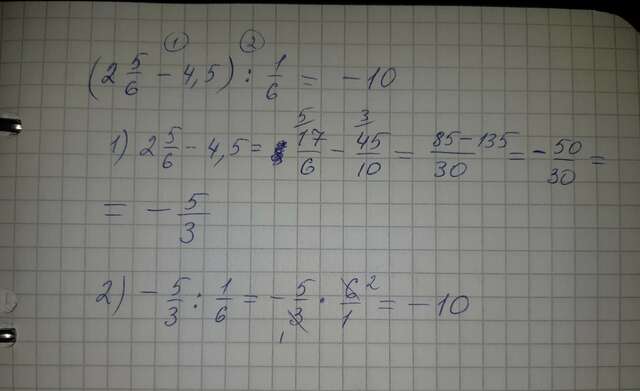 ① ②
(2 5/6 - 4,5) : 1/6 = -10
1) 2 5/6 - 4,5 = 17/6 ⁵ - 45/10 ³ = 85-135/30 = - 50/30 =
= - 5/3
2) - 5/3 : 1/6 = - 5/3 ₁ · 6/1 ² = -10